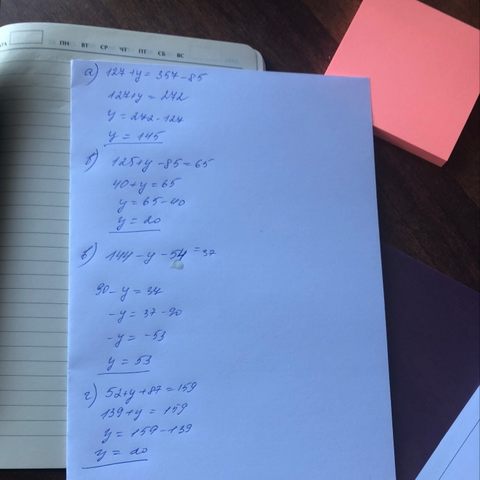 ПН ВТ СР ЧТ ПТ СБ ВС
а) 127+y=357-85
127+y=272
y=272-127
y=145
б) 125+y-85=65
40+y=65
y=65-40
y=20
в) 144-y-54=37
90-y=37
-y=37-90
-y=-53
y=53
г) 52+y+87=159
139+y=159
y=159-139
y=20